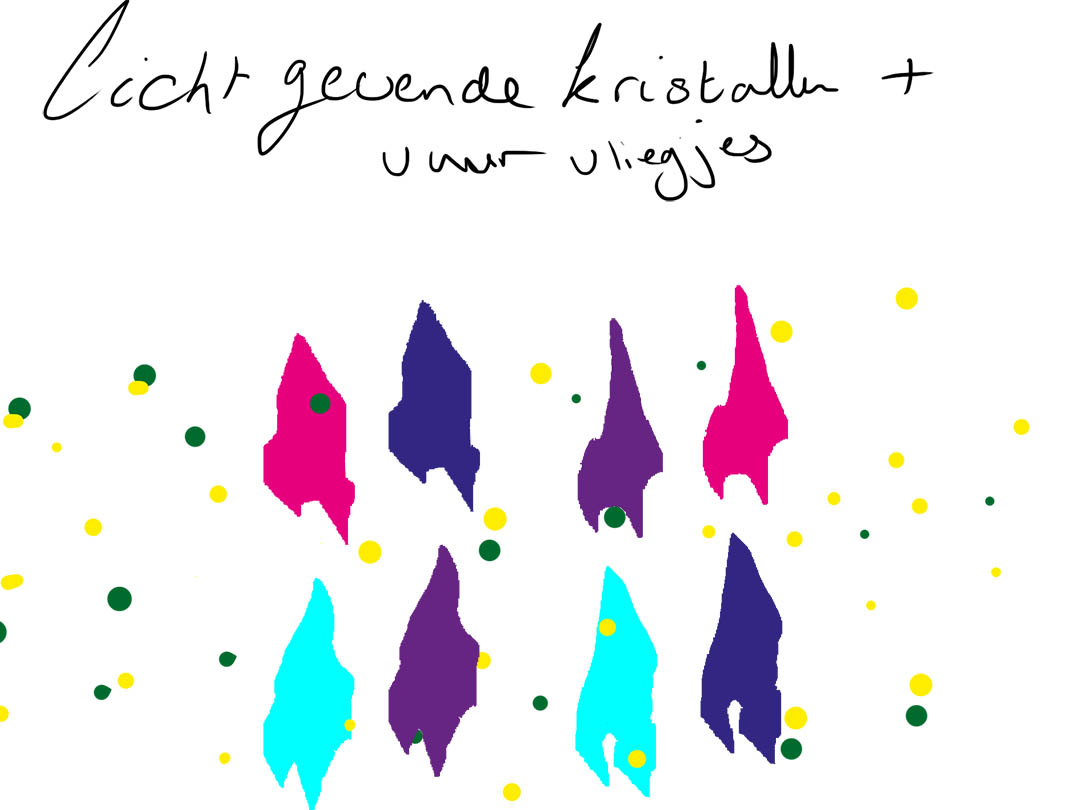 licht gevende kristallen +
vuur vliegjes